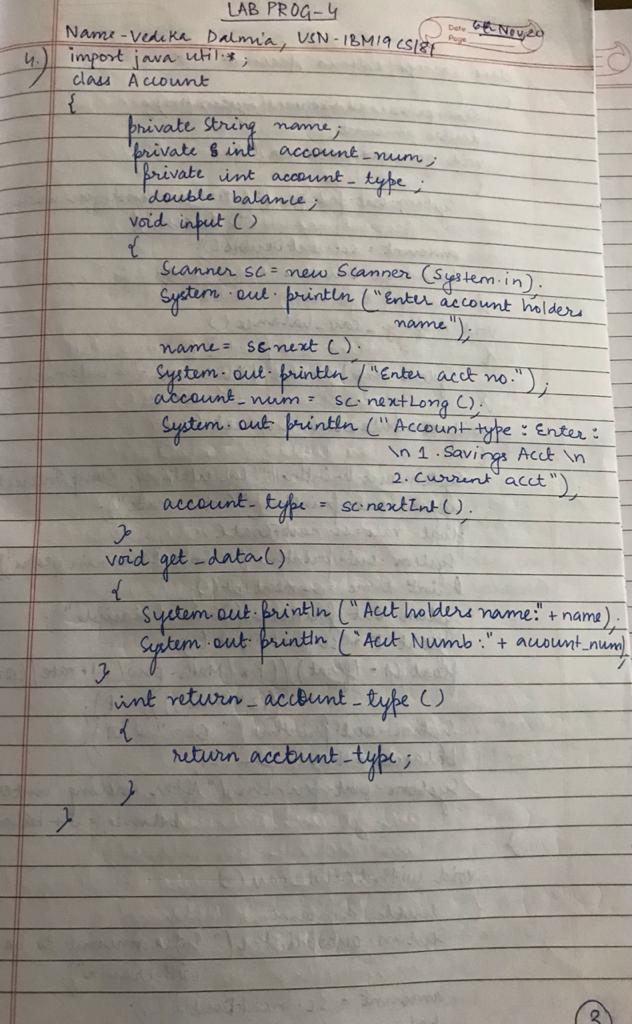 LAB PROG-4
Name-Vedika Dalmia, USN-1BM19CS181
Date 6th Nov, 20
Page
4.) import java util.*;
class Account
{
private String name;
private int account_num;
private int account_type;
double balance;
void input ()
{
Scanner sc = new Scanner (System.in).
System.out.println ("Enter account holders
name");
name = sc.next ().
System.out.println ("Enter acct no.");
account_num = sc.nextLong ();
System.out println ("Account type : Enter :
\n 1. Savings Acct \n
2. Current acct");
account_type = sc.nextInt ();
}
void get_data()
{
System.out.println ("Acct holders name:" + name);
System.out.println ("Acct Numb:" + account_num);
}
int return_account_type ()
{
return account_type;
}
}
2